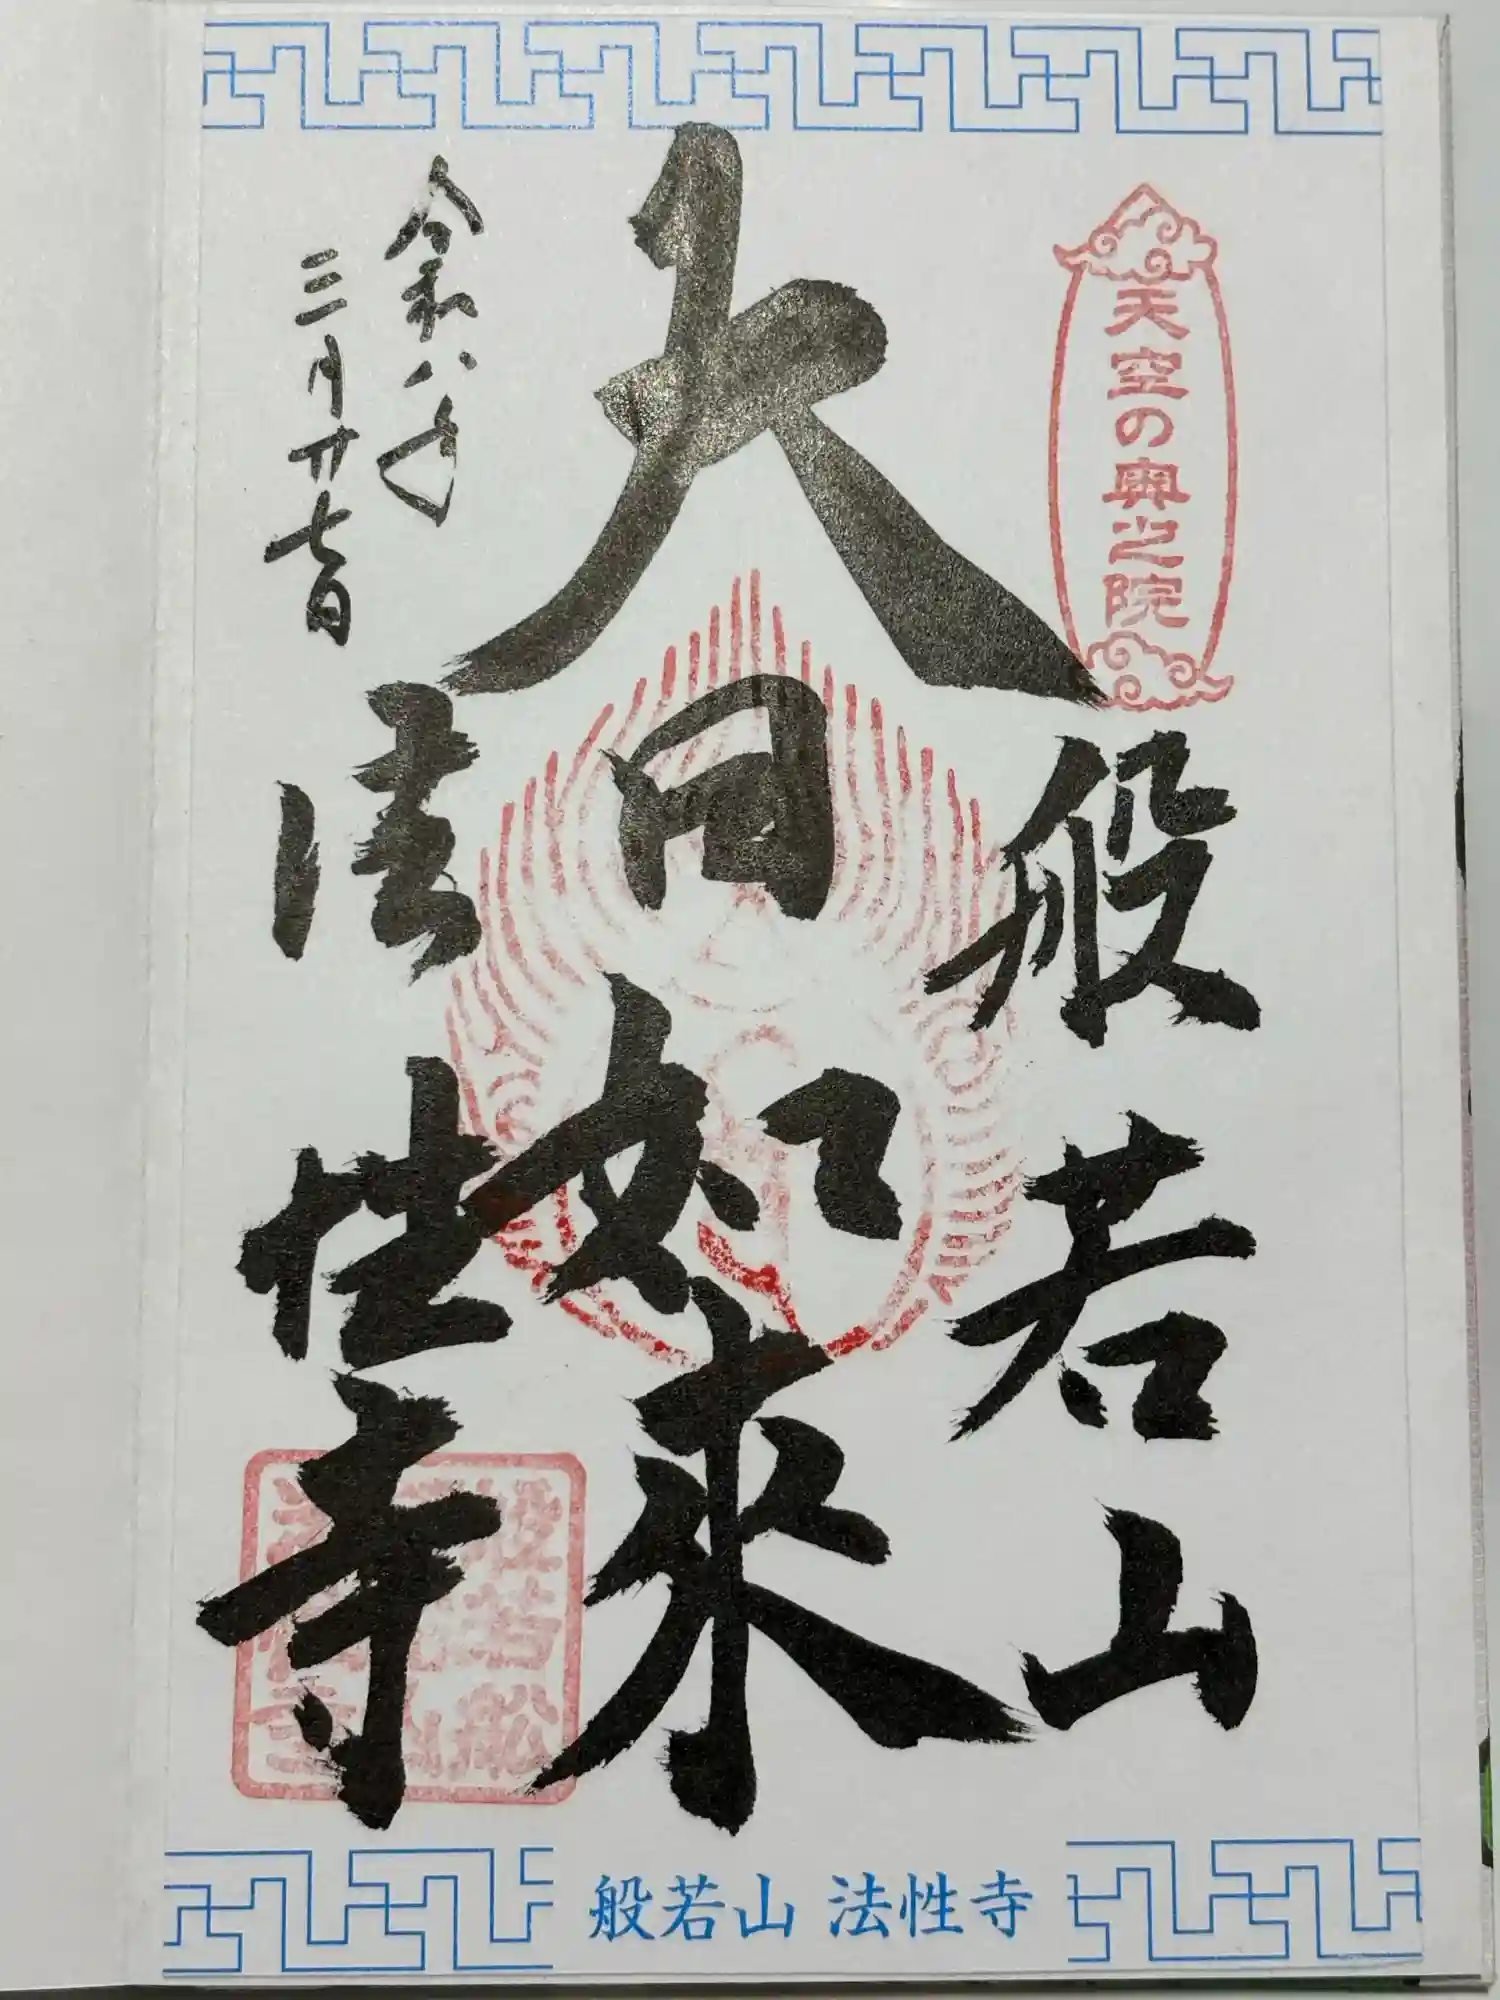 天空の奥之院
般若山
大日如来
令和八年
三月廿七日
法性寺
般若山 法性寺